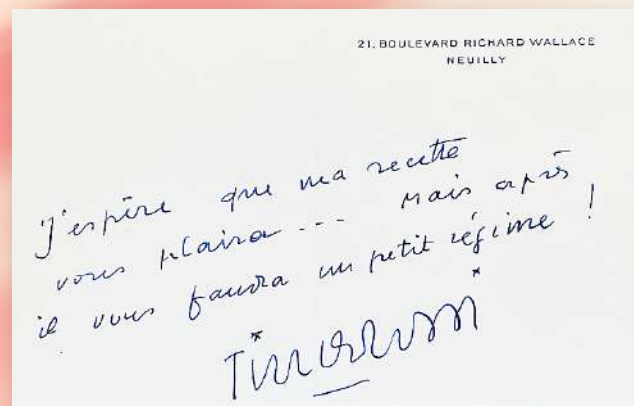 21, BOULEVARD RICHARD WALLACE
NEUILLY
J'espère que ma recette
vous plaira... Mais après
il vous faudra un petit régime !